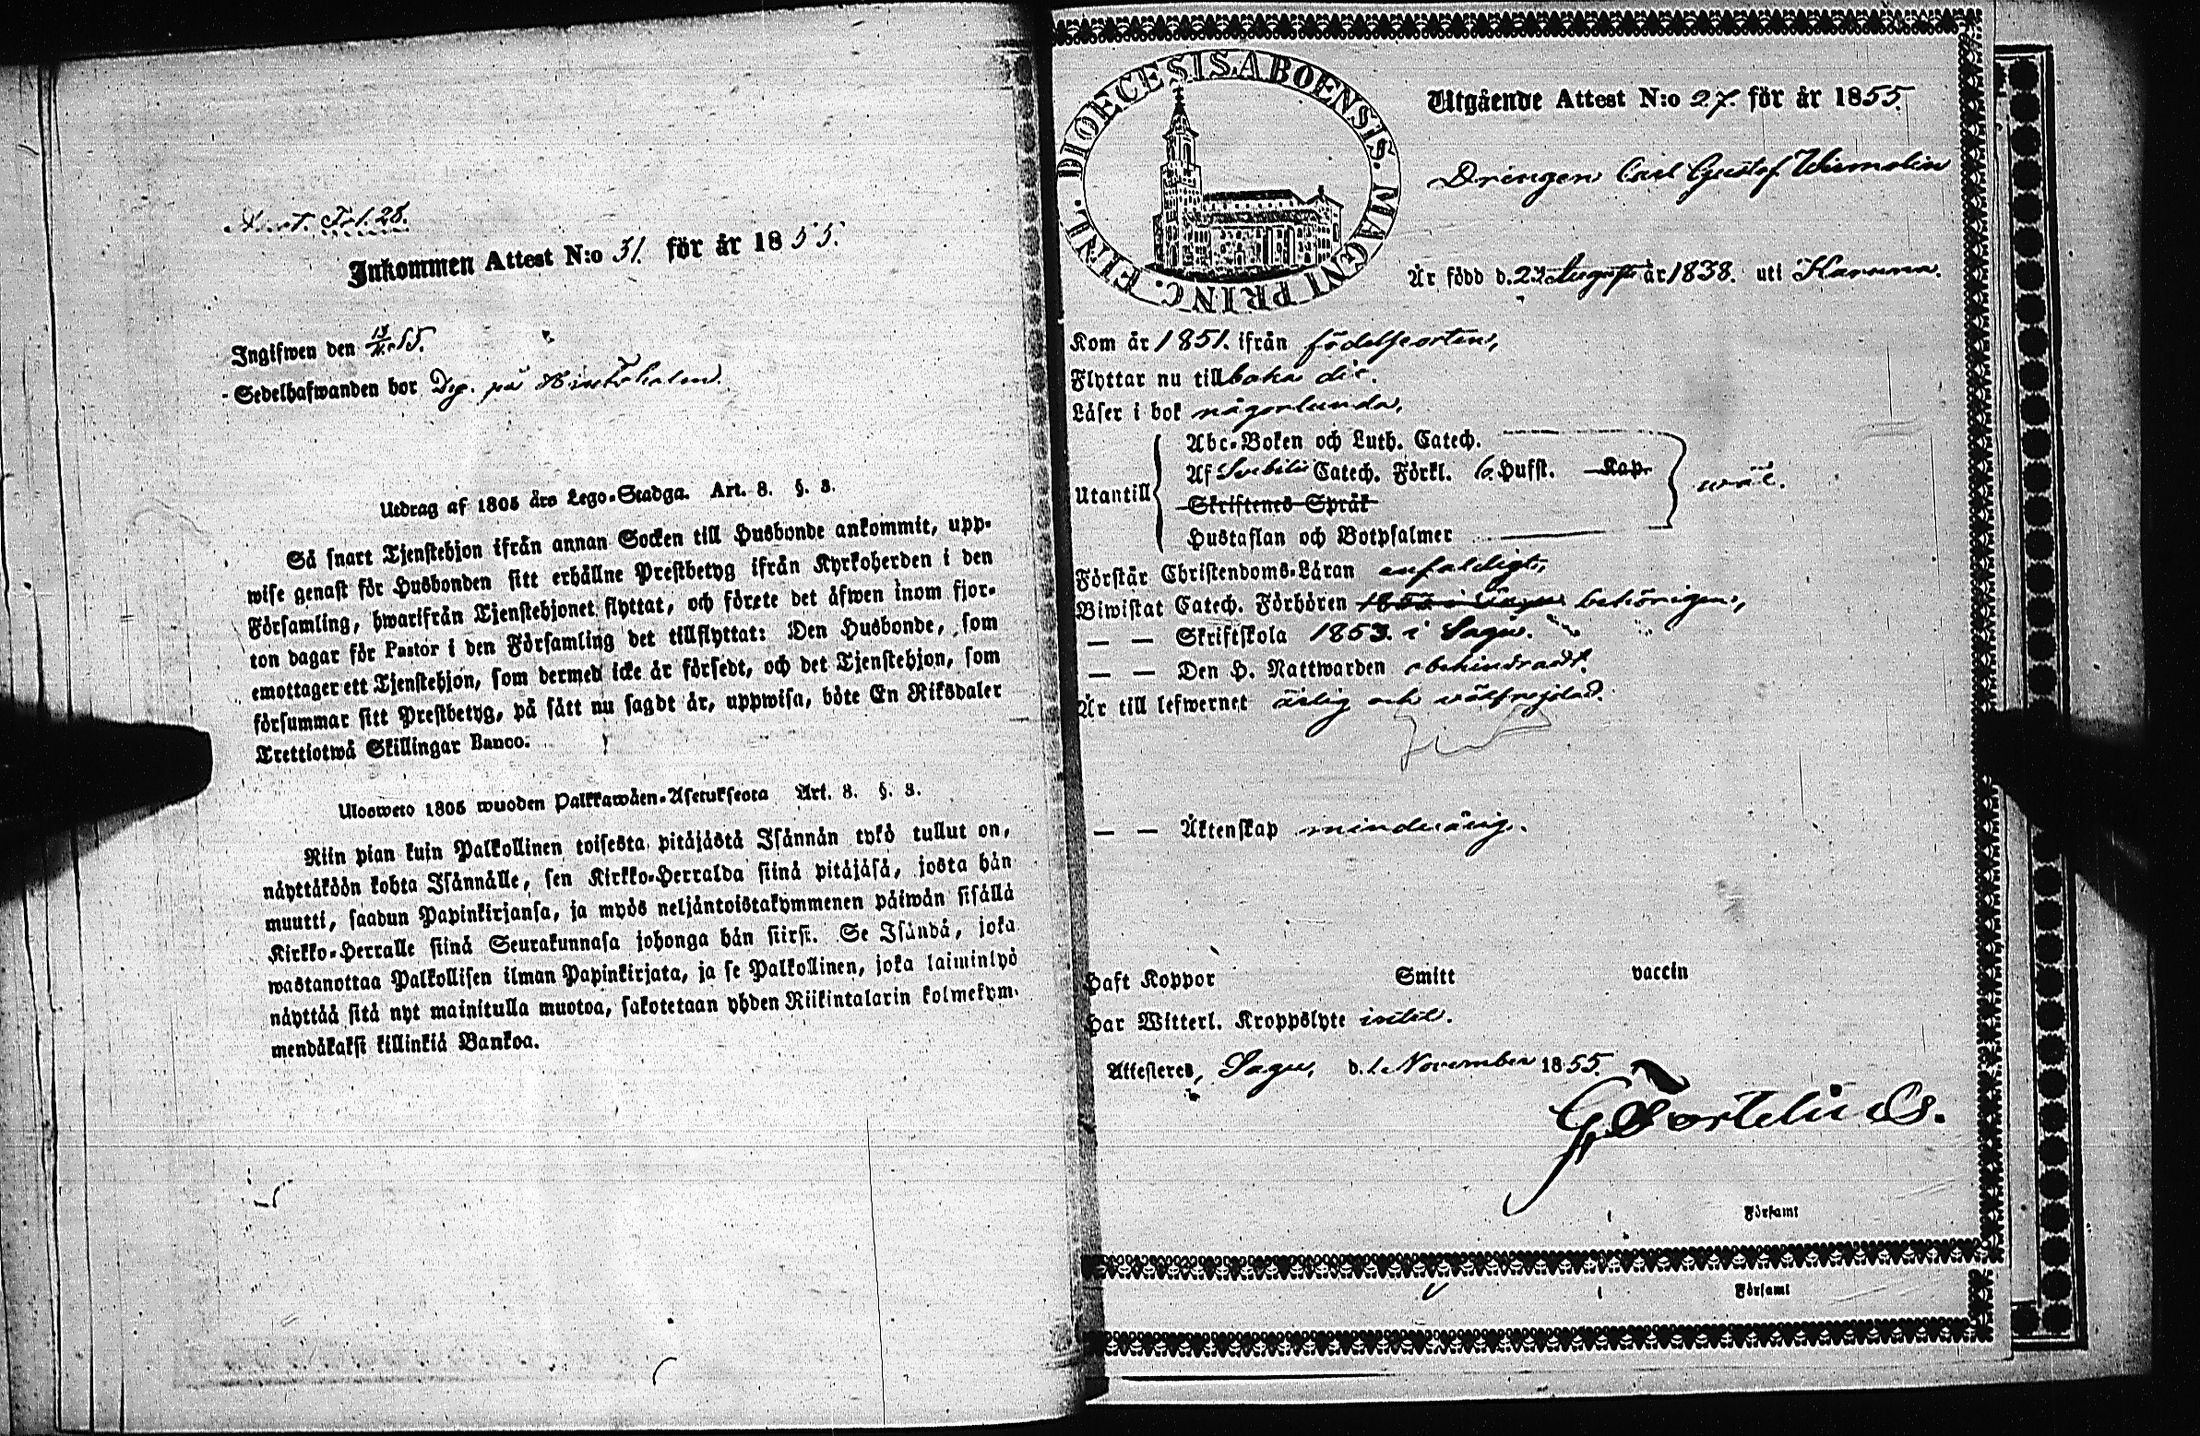 Fol. 28.
Inkommen Attest N:o 31. för år 1855.
Ingifwen den 13/11 55.
Sedelhafwanden bor Dg. på
Utdrag af 1805 års Lego-Stadga. Art. 8. §. 3.
Så snart Tjenstehjon ifrån annan Socken till Husbonde ankommit, upp-
wise genast för Husbonden sitt erhållne Prestbetyg ifrån Kyrkoherden i den
Församling, hwarifrån Tjenstehjonet flyttat, och förete det åfwen inom fjor-
ton dagar för Pastor i den Församling det tillflyttat: Den Husbonde, som
emottager ett Tjenstehjon, som dermed icke är försedt, och det Tjenstehjon, som
försummar sitt Prestbetyg, på sått nu sagdt år, uppwisa, böte En Riksdaler
Trettiotwå Skillingar Banco.
Ulosweto 1805 wuoden Palkkawåen-Asetuksesta Art. 8. §. 3.
Niin pian kuin Palkollinen toisesta pitåjåstå Isånnån tykö tullut on,
nåyttåköön kohta Isånnålle, sen Kirkko-Herralda siinå pitåjåså, josta hån
muutti, saadun Papinkirjansa, ja myös neljåntoistakymmenen påiwån sisållå
Kirkko-Herralle siinå Seurakunnasa johonga hån siirsi. Se Isåndå, joka
wastanottaa Palkollisen ilman Papinkirjata, ja se Palkollinen, joka laiminlyö
nåyttåå sitå nyt mainitulla muotoa, sakotetaan yhden Riikintalarin kolmekym-
mendåkaksi killinkiå Bankoa.
DIOECESIS ABOENSIS. MAGNI PRINC. FINL.
Utgående Attest N:o 27. för år 1855.
Drengen Carl Gustof
Är född d. 23 Augusti år 1838. uti Karuna.
Kom år 1851. ifrån födelseorten,
Flyttar nu tillbaka dit.
Låser i bok någorlunda,
Abc-Boken och Luth. Catech.
Af Svebilii Catech. Förkl. 6. Hufst. Kap.
Utantill
Skriftenes Språk
wäl.
Hustaflan och Botpsalmer
Förstår Christendoms-Låran enfaldigt,
Biwistat Catech. Förhören behörigen,
— — Skriftskola 1853. i Sagu.
— — Den H. Nattwarden obehindradt.
Är till lefwernet ärlig och wälfrejdad.
— — Äktenskap minderårig.
Haft Koppor Smitt vaccin
Har Witterl. Kroppslyte intet.
Attesteres, Sagu, d. 1 November 1855.
G Tortelius.
Förſamt
Förſamt